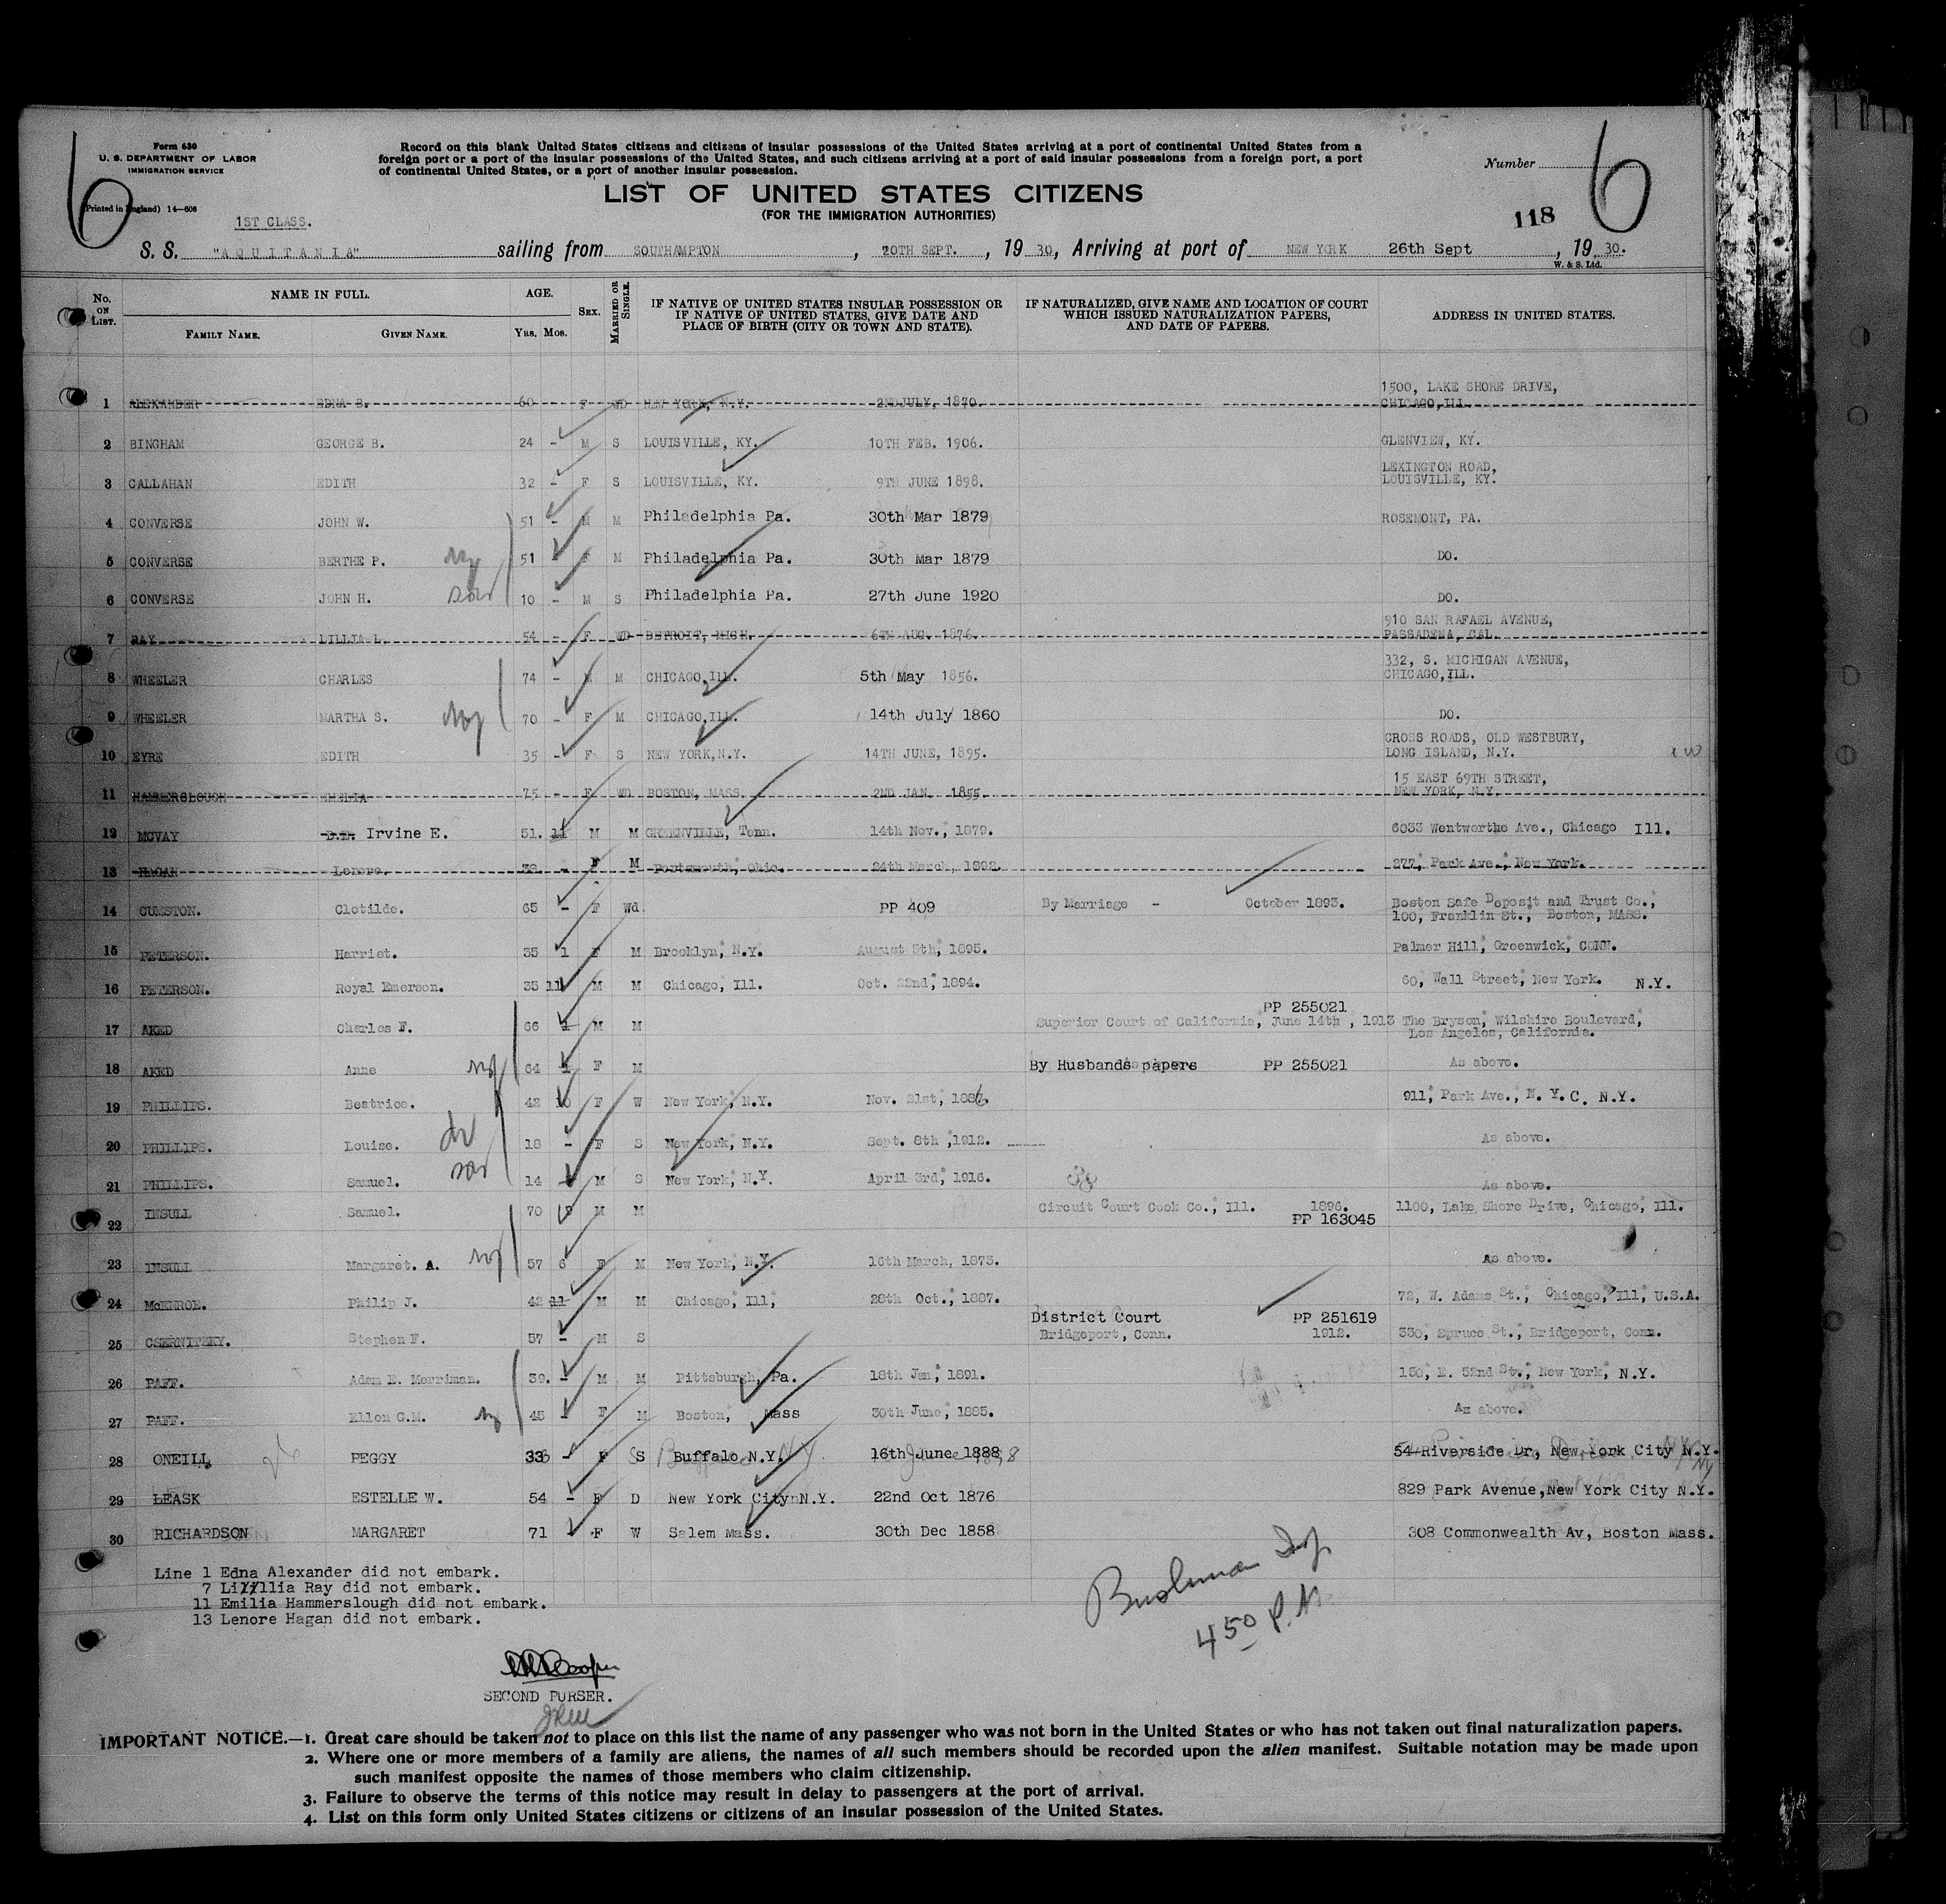 6
Form 630
U. S. DEPARTMENT OF LABOR
IMMIGRATION SERVICE
(Printed in England) 14—606
Record on this blank United States citizens and citizens of insular possessions of the United States arriving at a port of continental United States from a
foreign port or a port of the insular possessions of the United States, and such citizens arriving at a port of said insular possessions from a foreign port, a port
of continental United States, or a port of another insular possession.
Number
6
LIST OF UNITED STATES CITIZENS
(FOR THE IMMIGRATION AUTHORITIES)
118
1ST CLASS.
S. S. "AQUITANIA" sailing from SOUTHAMPTON, 20TH SEPT., 1930, Arriving at port of NEW YORK 26th Sept, 1930.
W. & S. Ltd.
No. ON LIST. NAME IN FULL. FAMILY NAME. GIVEN NAME. AGE. YRS. MOS. SEX. MARRIED OR SINGLE. IF NATIVE OF UNITED STATES INSULAR POSSESSION OR IF NATIVE OF UNITED STATES, GIVE DATE AND PLACE OF BIRTH (CITY OR TOWN AND STATE). IF NATURALIZED, GIVE NAME AND LOCATION OF COURT WHICH ISSUED NATURALIZATION PAPERS, AND DATE OF PAPERS. ADDRESS IN UNITED STATES.
1 ALEXANDER EDNA S. 60 F WD NEW YORK, N.Y. 2ND JULY, 1870. 1500, LAKE SHORE DRIVE, CHICAGO, ILL.
2 BINGHAM GEORGE B. 24 - M S LOUISVILLE, KY. 10TH FEB. 1906. GLENVIEW, KY.
3 CALLAHAN EDITH 32 - F S LOUISVILLE, KY. 9TH JUNE 1898. LEXINGTON ROAD, LOUISVILLE, KY.
4 CONVERSE JOHN W. 51 - M M Philadelphia Pa. 30th Mar 1879 ROSEMONT, PA.
5 CONVERSE BERTHE P. 51 F M Philadelphia Pa. 30th Mar 1879 DO.
6 CONVERSE JOHN H. 10 - M S Philadelphia Pa. 27th June 1920 DO.
7 RAY LILLIA L. 54 - F WD DETROIT, MICH. 6TH AUG. 1876. 910 SAN RAFAEL AVENUE, PASSADENA, CAL.
8 WHEELER CHARLES 74 - M M CHICAGO, ILL. 5th May 1856. 332, S. MICHIGAN AVENUE, CHICAGO, ILL.
9 WHEELER MARTHA S. 70 - F M CHICAGO, ILL. 14th July 1860 DO.
10 EYRE EDITH 35 - F S NEW YORK, N.Y. 14TH JUNE, 1895. CROSS ROADS, OLD WESTBURY, LONG ISLAND, N.Y.
11 HAMMERSLOUGH EMELIA 75 - F WD BOSTON, MASS. 2ND JAN. 1855. 15 EAST 69TH STREET, NEW YORK, N.Y.
12 MCVAY Irvine E. 51. 11 M M GREENVILLE, Tenn. 14th Nov., 1879. 6033 Wentworthe Ave., Chicago Ill.
13 HAGAN Lenore. 38 - F M Portsmouth, Ohio. 24th March, 1892. 277, Park Ave., New York.
14 CUMSTON. Clotilde. 65 - F Wd. PP 409 By Marriage - October 1893. Boston Safe Deposit and Trust Co., 100, Franklin St., Boston, MASS.
15 PETERSON. Harriet. 35 1 F M Brooklyn, N.Y. August 5th, 1895. Palmer Hill, Greenwick, CONN.
16 PETERSON. Royal Emerson. 35 11 M M Chicago, Ill. Oct. 22nd, 1894. 60, Wall Street, New York. N.Y.
17 AKED Charles F. 66 M M PP 255021 Superior Court of California, June 14th, 1913 The Bryson, Wilshire Boulevard, Los Angeles, California.
18 AKED Anne 64 F M By Husbands papers PP 255021 As above.
19 PHILLIPS. Beatrice. 42 10 F W New York, N.Y. Nov. 21st, 1886. 911, Park Ave., N. Y. C. N.Y.
20 PHILLIPS. Louise. 18 - F S New York, N.Y. Sept. 8th, 1912. As above.
21 PHILLIPS. Samuel. 14 M S New York, N.Y. April 3rd, 1916. As above.
22 INSULL Samuel. 70 M M Circuit Court Cook Co., Ill. 1896. PP 163045 1100, Lake Shore Drive, Chicago, Ill.
23 INSULL Margaret. A. 57 6 F M New York, N.Y. 16th March, 1873. As above.
24 McENROE. Philip J. 42 11 M M Chicago, Ill, 28th Oct., 1887. 72, W. Adams St., Chicago, Ill, U.S.A.
25 CSERNITZKY. Stephen F. 57 - M S District Court Bridgeport, Conn. PP 251619 1912. 330, Spruce St., Bridgeport, Conn.
26 PAFF. Adam E. Merriman. 39. - M M Pittsburgh, Pa. 18th Jan, 1891. 150, E. 52nd St., New York, N.Y.
27 PAFF. Ellen G.M. 45 F M Boston, Mass 30th June, 1885. As above.
28 ONEILL PEGGY 33 - F S Buffalo N.Y. 16th June 1888 54 Riverside Dr, New York City N.Y.
29 LEASK ESTELLE W. 54 - F D New York City N.Y. 22nd Oct 1876 829 Park Avenue, New York City N.Y.
30 RICHARDSON MARGARET 71 F W Salem Mass. 30th Dec 1858 308 Commonwealth Av, Boston Mass.
Line 1 Edna Alexander did not embark.
7 Lillia Ray did not embark.
11 Emilia Hammerslough did not embark.
13 Lenore Hagan did not embark.
450 P.M.
SECOND PURSER.
IMPORTANT NOTICE.—1. Great care should be taken not to place on this list the name of any passenger who was not born in the United States or who has not taken out final naturalization papers.
2. Where one or more members of a family are aliens, the names of all such members should be recorded upon the alien manifest. Suitable notation may be made upon
such manifest opposite the names of those members who claim citizenship.
3. Failure to observe the terms of this notice may result in delay to passengers at the port of arrival.
4. List on this form only United States citizens or citizens of an insular possession of the United States.